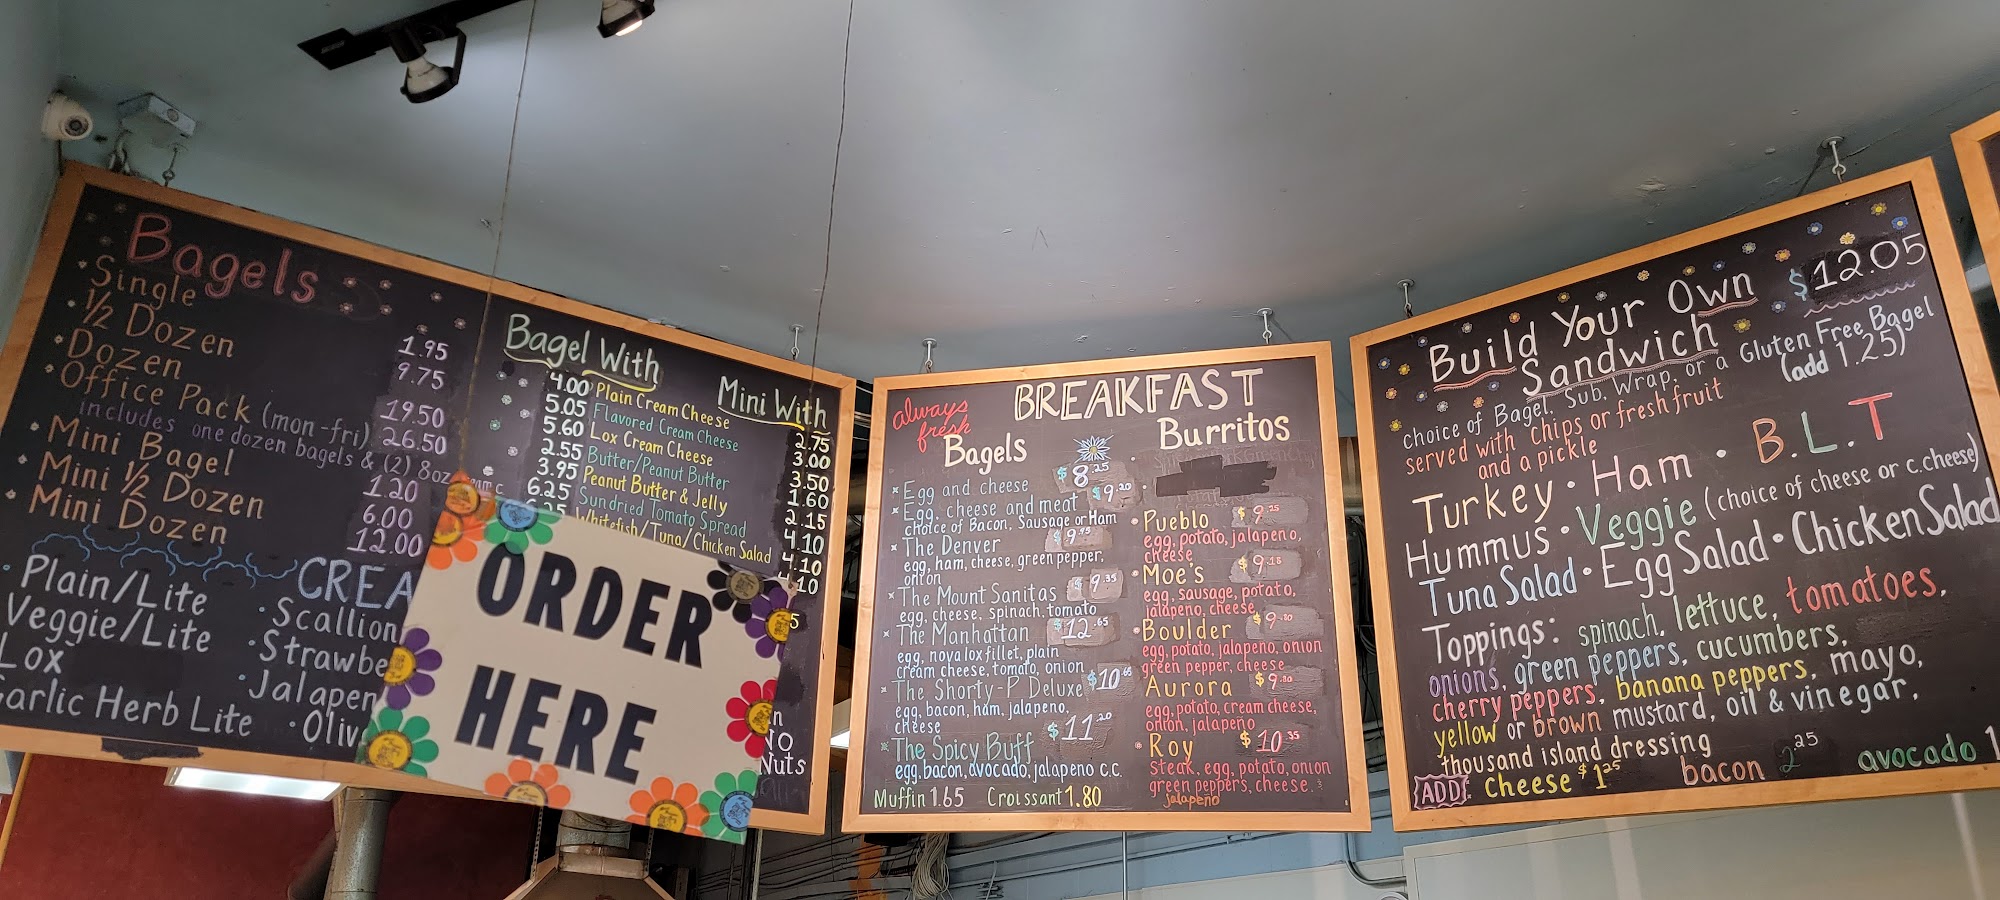 Bagels
• Single 1.95
• 1/2 Dozen 9.75
• Dozen 19.50
• Office Pack (mon-fri) 26.50
includes one dozen bagels & (2) 8oz
• Mini Bagel 1.20
• Mini 1/2 Dozen 6.00
• Mini Dozen 12.00
Bagel With
Mini With
4.00 Plain Cream Cheese 2.75
5.05 Flavored Cream Cheese 3.00
5.60 Lox Cream Cheese 3.50
2.55 Butter/Peanut Butter 1.60
3.95 Peanut Butter & Jelly 2.15
6.25 Sundried Tomato Spread 4.10
Whitefish/Tuna/Chicken Salad 4.10
CREA
• Plain/Lite
Veggie/Lite
Lox
Garlic Herb Lite
• Scallion
• Strawbe
• Jalapen
• Oliv
NO
Nuts
ORDER
HERE
always
fresh
BREAKFAST
Bagels
Egg and cheese $8.25
Egg, cheese and meat $9.20
choice of Bacon, Sausage or Ham
The Denver $9.95
egg, ham, cheese, green pepper,
onion
The Mount Sanitas $9.35
egg, cheese, spinach, tomato
The Manhattan $12.65
egg, nova lox fillet, plain
cream cheese, tomato, onion
The Shorty-P Deluxe $10.65
egg, bacon, ham, jalapeno,
cheese
The Spicy Buff $11.20
egg, bacon, avocado, jalapeno c.c.
Muffin 1.65 Croissant 1.80
Burritos
• Pueblo $9.25
egg, potato, jalapeno,
cheese
• Moe's $9.15
egg, sausage, potato,
jalapeno, cheese
• Boulder $9.10
egg, potato, jalapeno, onion
green pepper, cheese
Aurora $9.80
egg, potato, cream cheese,
onion, jalapeno
• Roy $10.35
steak, egg, potato, onion
green peppers, cheese,
jalapeño
Build Your Own
Sandwich
$12.05
choice of Bagel, Sub, Wrap, or a Gluten Free Bagel
(add 1.25)
served with chips or fresh fruit
and a pickle
Turkey • Ham • B.L.T
Hummus • Veggie (choice of cheese or c.cheese)
Tuna Salad • Egg Salad • Chicken Salad
Toppings: spinach, lettuce, tomatoes,
onions, green peppers, cucumbers,
cherry peppers, banana peppers, mayo,
yellow or brown mustard, oil & vinegar,
thousand island dressing
ADD: cheese $1.25 bacon 2.25 avocado 1